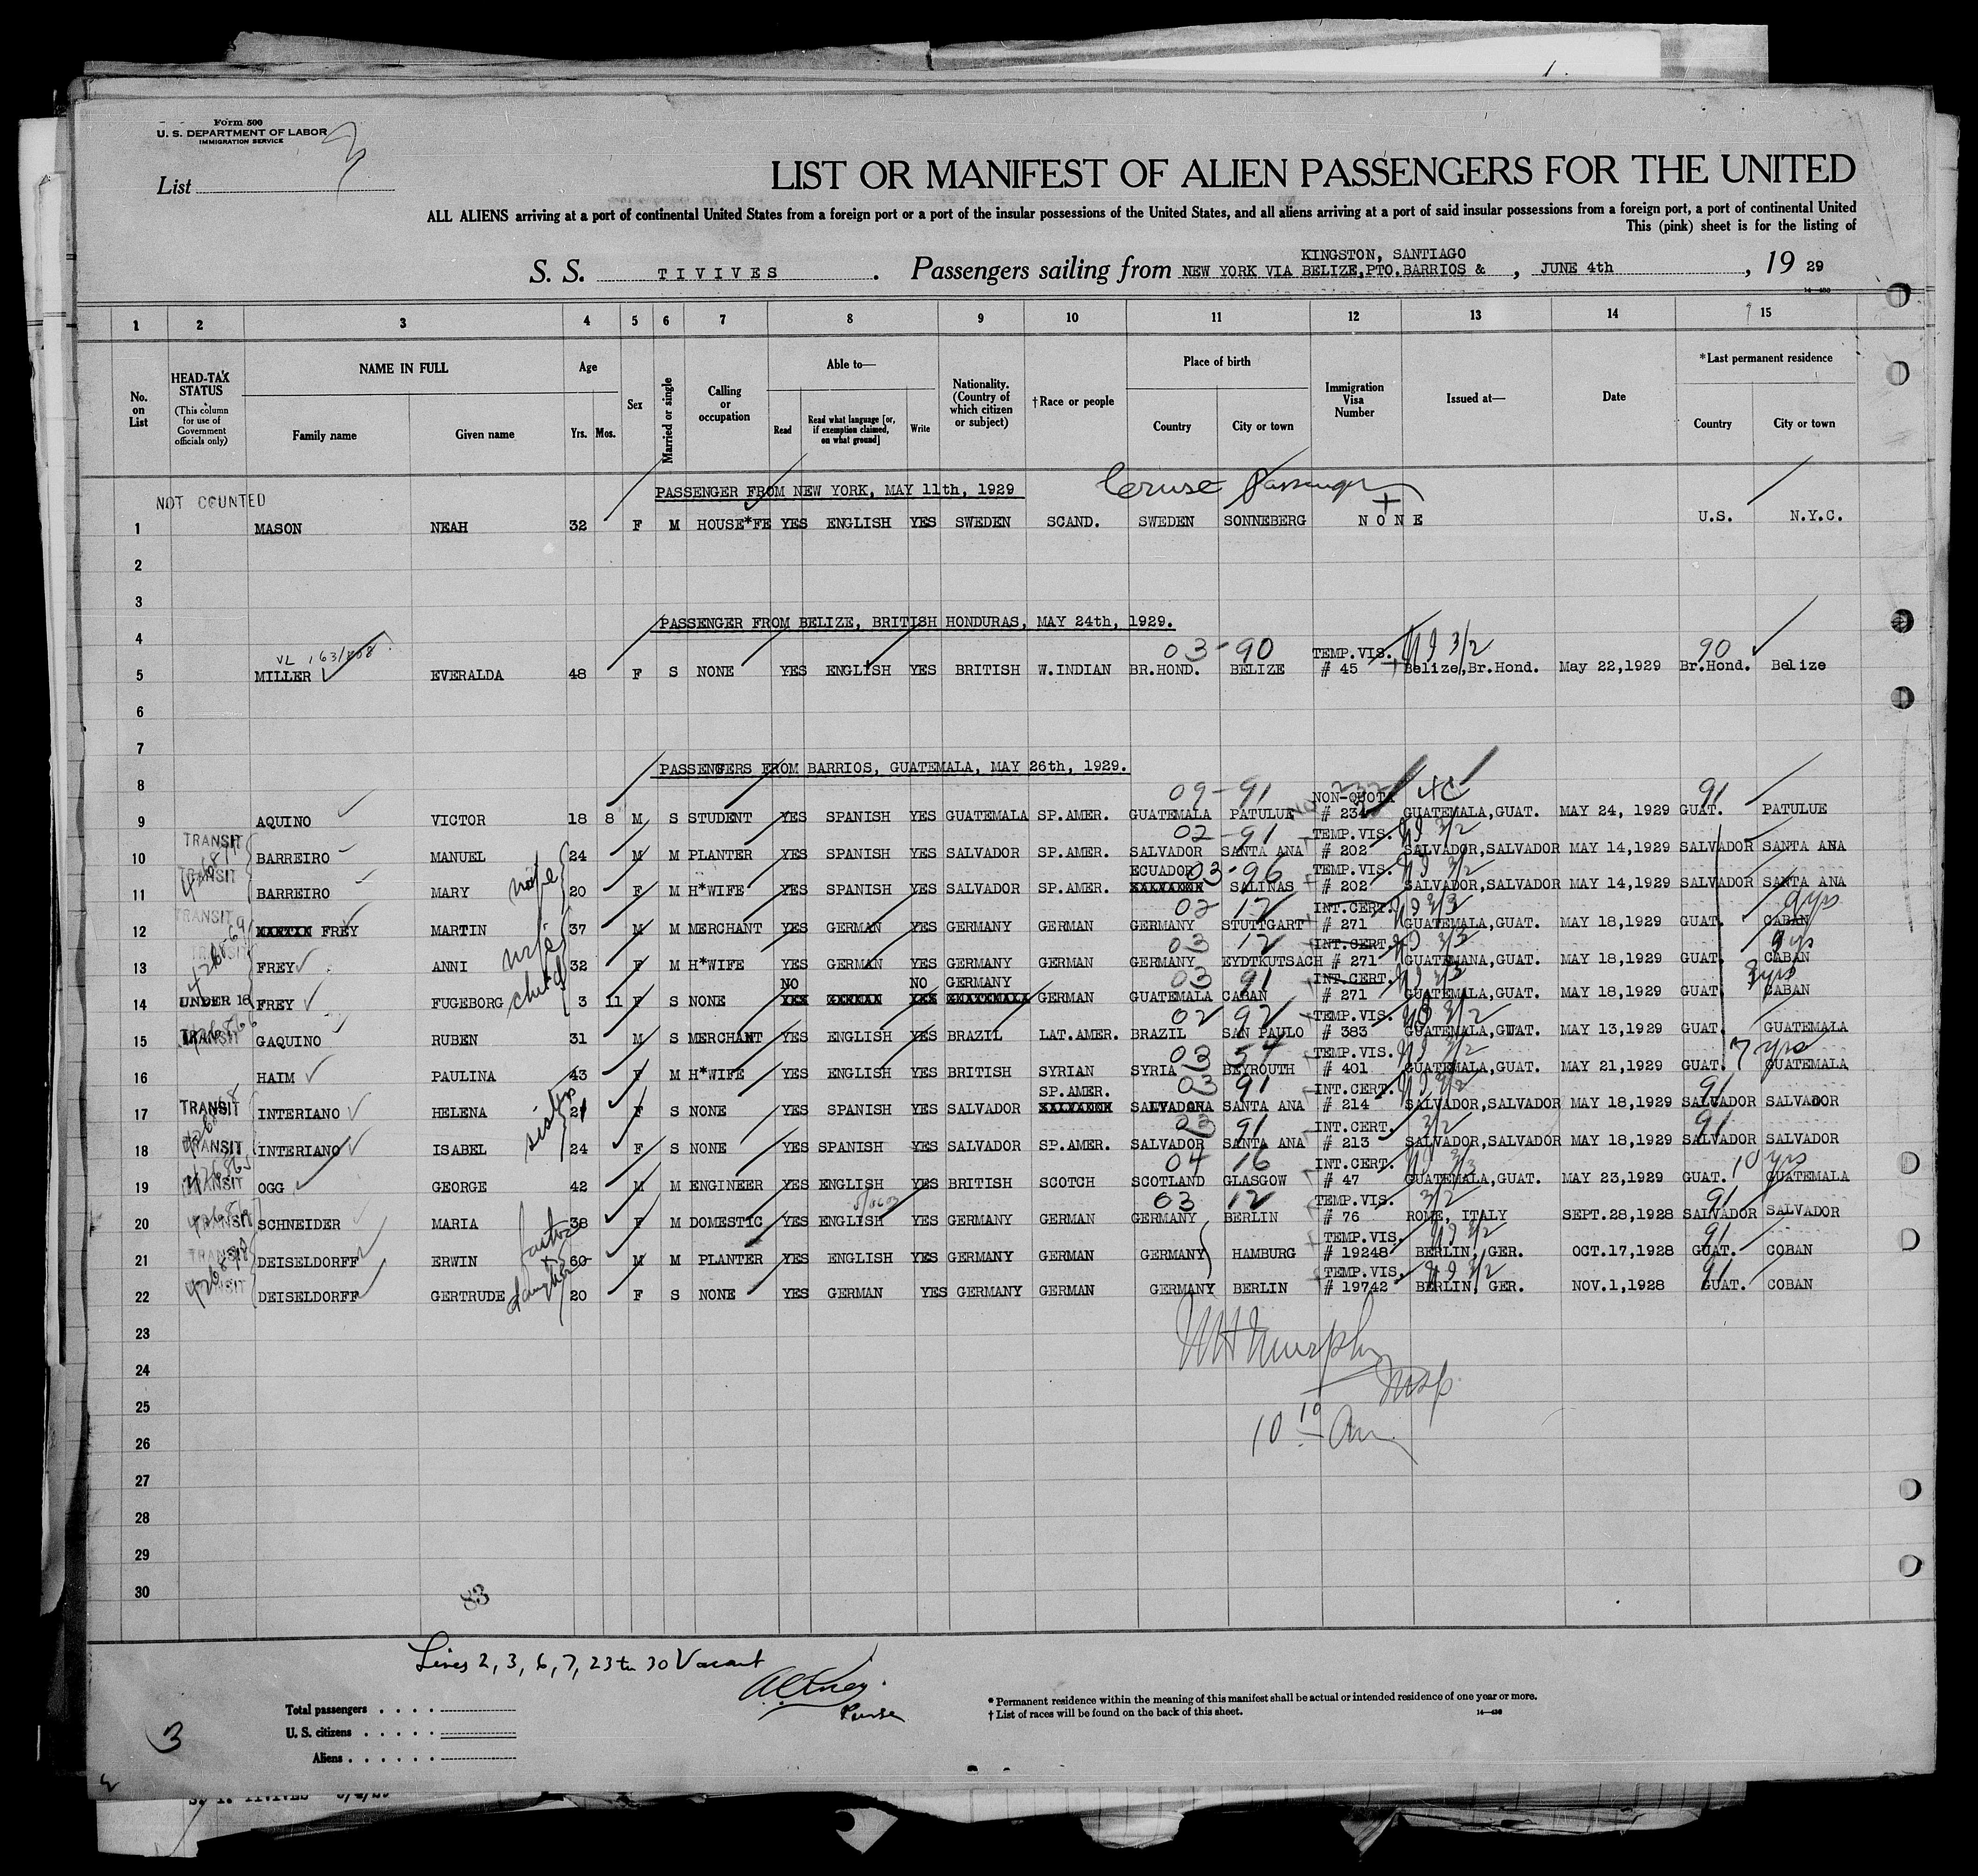 1.
Form 500
U. S. DEPARTMENT OF LABOR
IMMIGRATION SERVICE
List
LIST OR MANIFEST OF ALIEN PASSENGERS FOR THE UNITED
ALL ALIENS arriving at a port of continental United States from a foreign port or a port of the insular possessions of the United States, and all aliens arriving at a port of said insular possessions from a foreign port, a port of continental United
This (pink) sheet is for the listing of
KINGSTON, SANTIAGO
S. S. TIVIVES . Passengers sailing from NEW YORK VIA BELIZE,PTO.BARRIOS & , JUNE 4th , 19 29
14-430
1 2 3 4 5 6 7 8 9 10 11 12 13 14 15
No. on List
HEAD-TAX STATUS
(This column for use of Government officials only)
NAME IN FULL
Family name Given name
Age
Yrs. Mos.
Sex
Married or single
Calling or occupation
Able to—
Read
Read what language [or, if exemption claimed, on what ground]
Write
Nationality. (Country of which citizen or subject)
†Race or people
Place of birth
Country City or town
Immigration Visa Number
Issued at—
Date
*Last permanent residence
Country City or town
PASSENGER FROM NEW YORK, MAY 11th, 1929 Cruise Passenger
NOT COUNTED
1 MASON NEAH 32 F M HOUSE*FE YES ENGLISH YES SWEDEN SCAND. SWEDEN SONNEBERG NONE U.S. N.Y.C.
2
3
PASSENGER FROM BELIZE, BRITISH HONDURAS, MAY 24th, 1929.
4
03-90 TEMP.VIS. 3/2 90
5 MILLER EVERALDA 48 F S NONE YES ENGLISH YES BRITISH W.INDIAN BR.HOND. BELIZE # 45 Belize,Br.Hond. May 22,1929 Br.Hond. Belize
6
7
PASSENGERS FROM BARRIOS, GUATEMALA, MAY 26th, 1929.
8
09-91 NON-QUOTA 4C 91
9 AQUINO VICTOR 18 8 M S STUDENT YES SPANISH YES GUATEMALA SP.AMER. GUATEMALA PATULUE # 234 GUATEMALA,GUAT. MAY 24, 1929 GUAT. PATULUE
TRANSIT 02-91 TEMP.VIS. 3/2
10 BARREIRO MANUEL 24 M M PLANTER YES SPANISH YES SALVADOR SP.AMER. SALVADOR SANTA ANA # 202 SALVADOR,SALVADOR MAY 14,1929 SALVADOR SANTA ANA
TRANSIT wife ECUADOR 03-96 TEMP.VIS. 3/2
11 BARREIRO MARY 20 F M H*WIFE YES SPANISH YES SALVADOR SP.AMER. SALINAS # 202 SALVADOR,SALVADOR MAY 14,1929 SALVADOR SANTA ANA
TRANSIT 02 12 INT.CERT. 3/3 9 yrs
12 MARTIN FREY MARTIN 37 M M MERCHANT YES GERMAN YES GERMANY GERMAN GERMANY STUTTGART # 271 GUATEMALA,GUAT. MAY 18,1929 GUAT. CABAN
TRANSIT wife 03 12 INT.CERT. 3/3 9 yrs
13 FREY ANNI 32 F M H*WIFE YES GERMAN YES GERMANY GERMAN GERMANY EYDTKUTSACH # 271 GUATEMANA,GUAT. MAY 18,1929 GUAT. CABAN
child NO NO GERMANY 03 91 INT.CERT. 3/3 3 yrs
14 UNDER 16 FREY FUGEBORG 3 11 F S NONE YES GERMAN YES GUATEMALA GERMAN GUATEMALA CABAN # 271 GUATEMALA,GUAT. MAY 18,1929 GUAT. CABAN
02 92 TEMP.VIS. 3/2
15 TRANSIT GAQUINO RUBEN 31 M S MERCHANT YES ENGLISH YES BRAZIL LAT.AMER. BRAZIL SAN PAULO # 383 GUATEMALA,GUAT. MAY 13,1929 GUAT. GUATEMALA
03 54 TEMP.VIS. 3/2 7 yrs
16 HAIM PAULINA 43 F M H*WIFE YES ENGLISH YES BRITISH SYRIAN SYRIA BEYROUTH # 401 GUATEMALA,GUAT. MAY 21,1929 GUAT. GUATEMALA
SP.AMER. 03 91 INT.CERT. 3/2 91
17 TRANSIT INTERIANO HELENA 21 F S NONE YES SPANISH YES SALVADOR SALVADOR SANTA ANA # 214 SALVADOR,SALVADOR MAY 18,1929 SALVADOR SALVADOR
sisters 03 91 INT.CERT. 3/2 91
18 TRANSIT INTERIANO ISABEL 24 F S NONE YES SPANISH YES SALVADOR SP.AMER. SALVADOR SANTA ANA # 213 SALVADOR,SALVADOR MAY 18,1929 SALVADOR SALVADOR
04 16 INT.CERT. 3/3 10 yrs
19 TRANSIT OGG GEORGE 42 M M ENGINEER YES ENGLISH YES BRITISH SCOTCH SCOTLAND GLASGOW # 47 GUATEMALA,GUAT. MAY 23,1929 GUAT. GUATEMALA
03 12 TEMP.VIS. 3/2 91
20 TRANSIT SCHNEIDER MARIA 38 F M DOMESTIC YES ENGLISH YES GERMANY GERMAN GERMANY BERLIN # 76 ROME, ITALY SEPT.28,1928 SALVADOR SALVADOR
TRANSIT TEMP.VIS. 3/2 91
21 DEISELDORFF ERWIN 60 M M PLANTER YES ENGLISH YES GERMANY GERMAN GERMANY HAMBURG # 19248 BERLIN, GER. OCT.17,1928 GUAT. COBAN
TRANSIT daughter TEMP.VIS. 3/2 91
22 DEISELDORFF GERTRUDE 20 F S NONE YES GERMAN YES GERMANY GERMAN GERMANY BERLIN # 19742 BERLIN, GER. NOV.1,1928 GUAT. COBAN
23
24 Murphy
25 Insp.
26 10 10 Am
27
28
29
30
83
Lines 2, 3, 6, 7, 23 to 30 Vacant
Purser
Total passengers
U. S. citizens
Aliens
* Permanent residence within the meaning of this manifest shall be actual or intended residence of one year or more.
† List of races will be found on the back of this sheet.
14-430
3